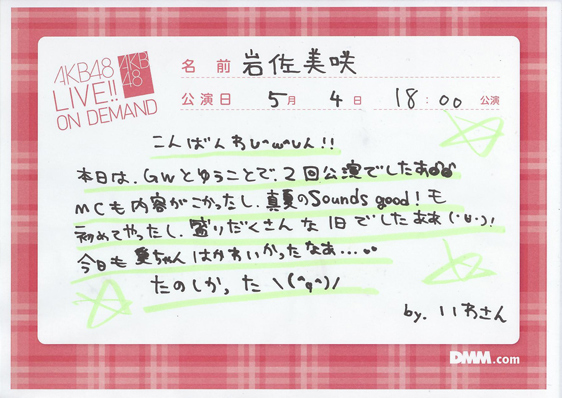 AKB48
LIVE!!
ON DEMAND
AKB
48
名 前 岩佐美咲
公演日 5月 4日 18:00 公演
こんばんわし∩w∩しん!!
本日は、GWとゆうことで、2回公演でしたあ
MCも内容がこかったし、真夏のSounds good!も
初めてやったし、盛りだくさんな1日でしたああ(・ω・)!
今日も
ちゃんはかわいかったなあ...
たのしかった \(^q^)/
by. いわさん
DMM.com